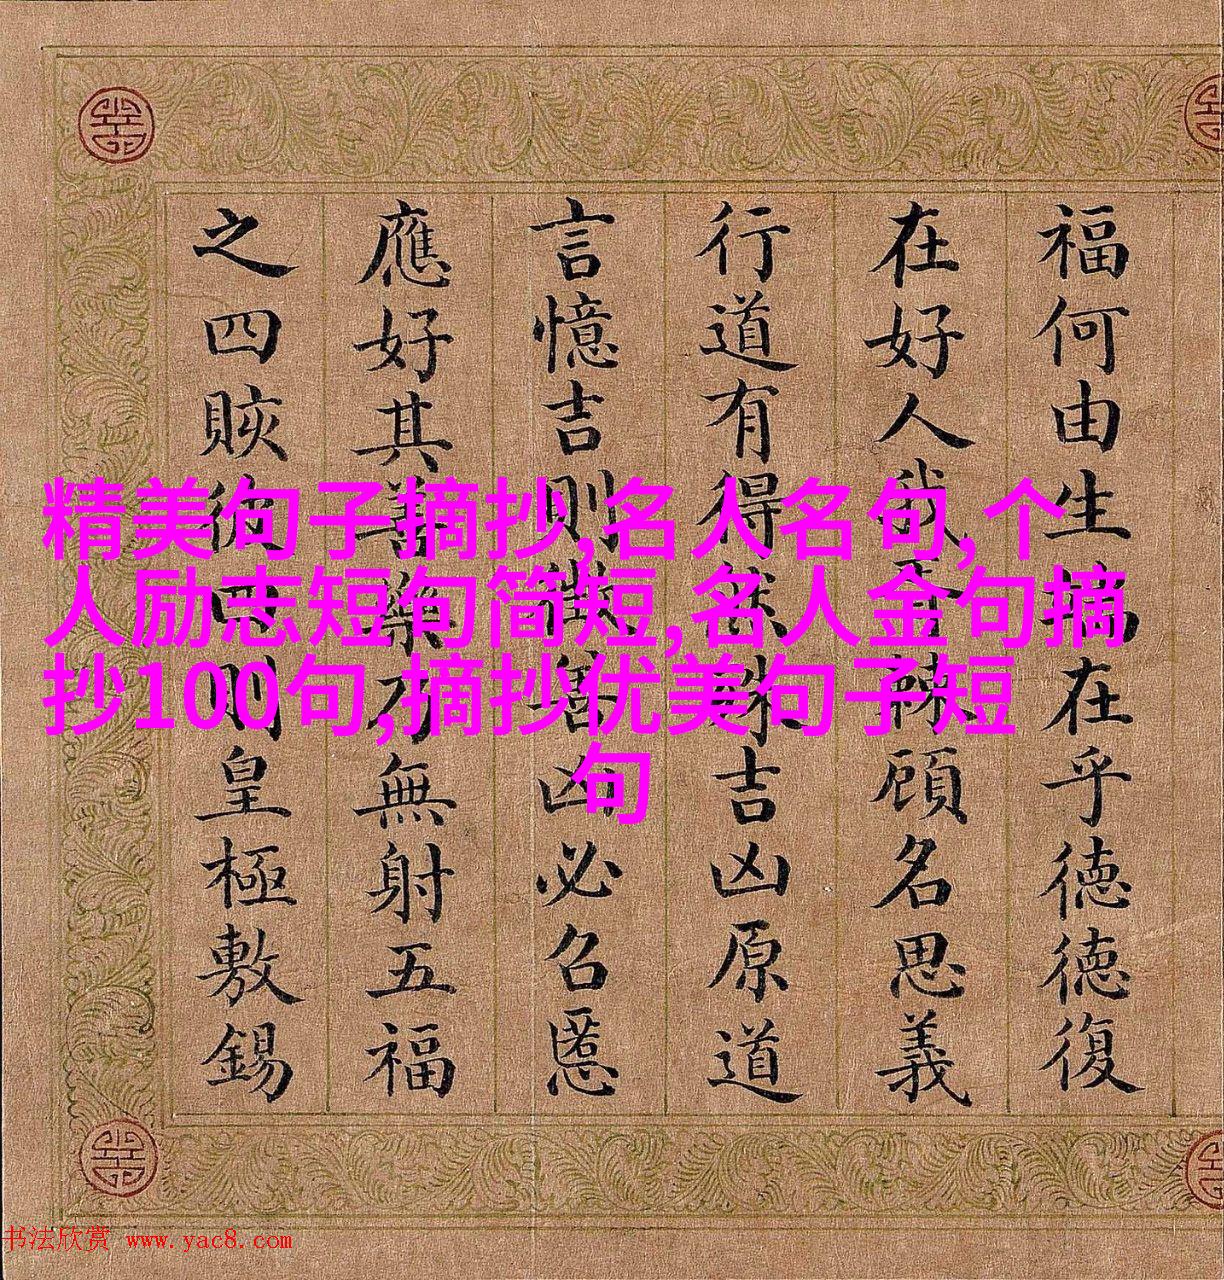 福何由生在乎德德復
在好人我顧名思義
行道有得吉凶原道
言憶吉則凶必召慝
應好其善樂乃無射五福
之四賅彼四則皇極敷錫
精美句子摘抄,名人名句,个
人励志短句简短,名人金句摘
抄100句,摘抄优美句子短
句
书法欣赏 www.yac8.com